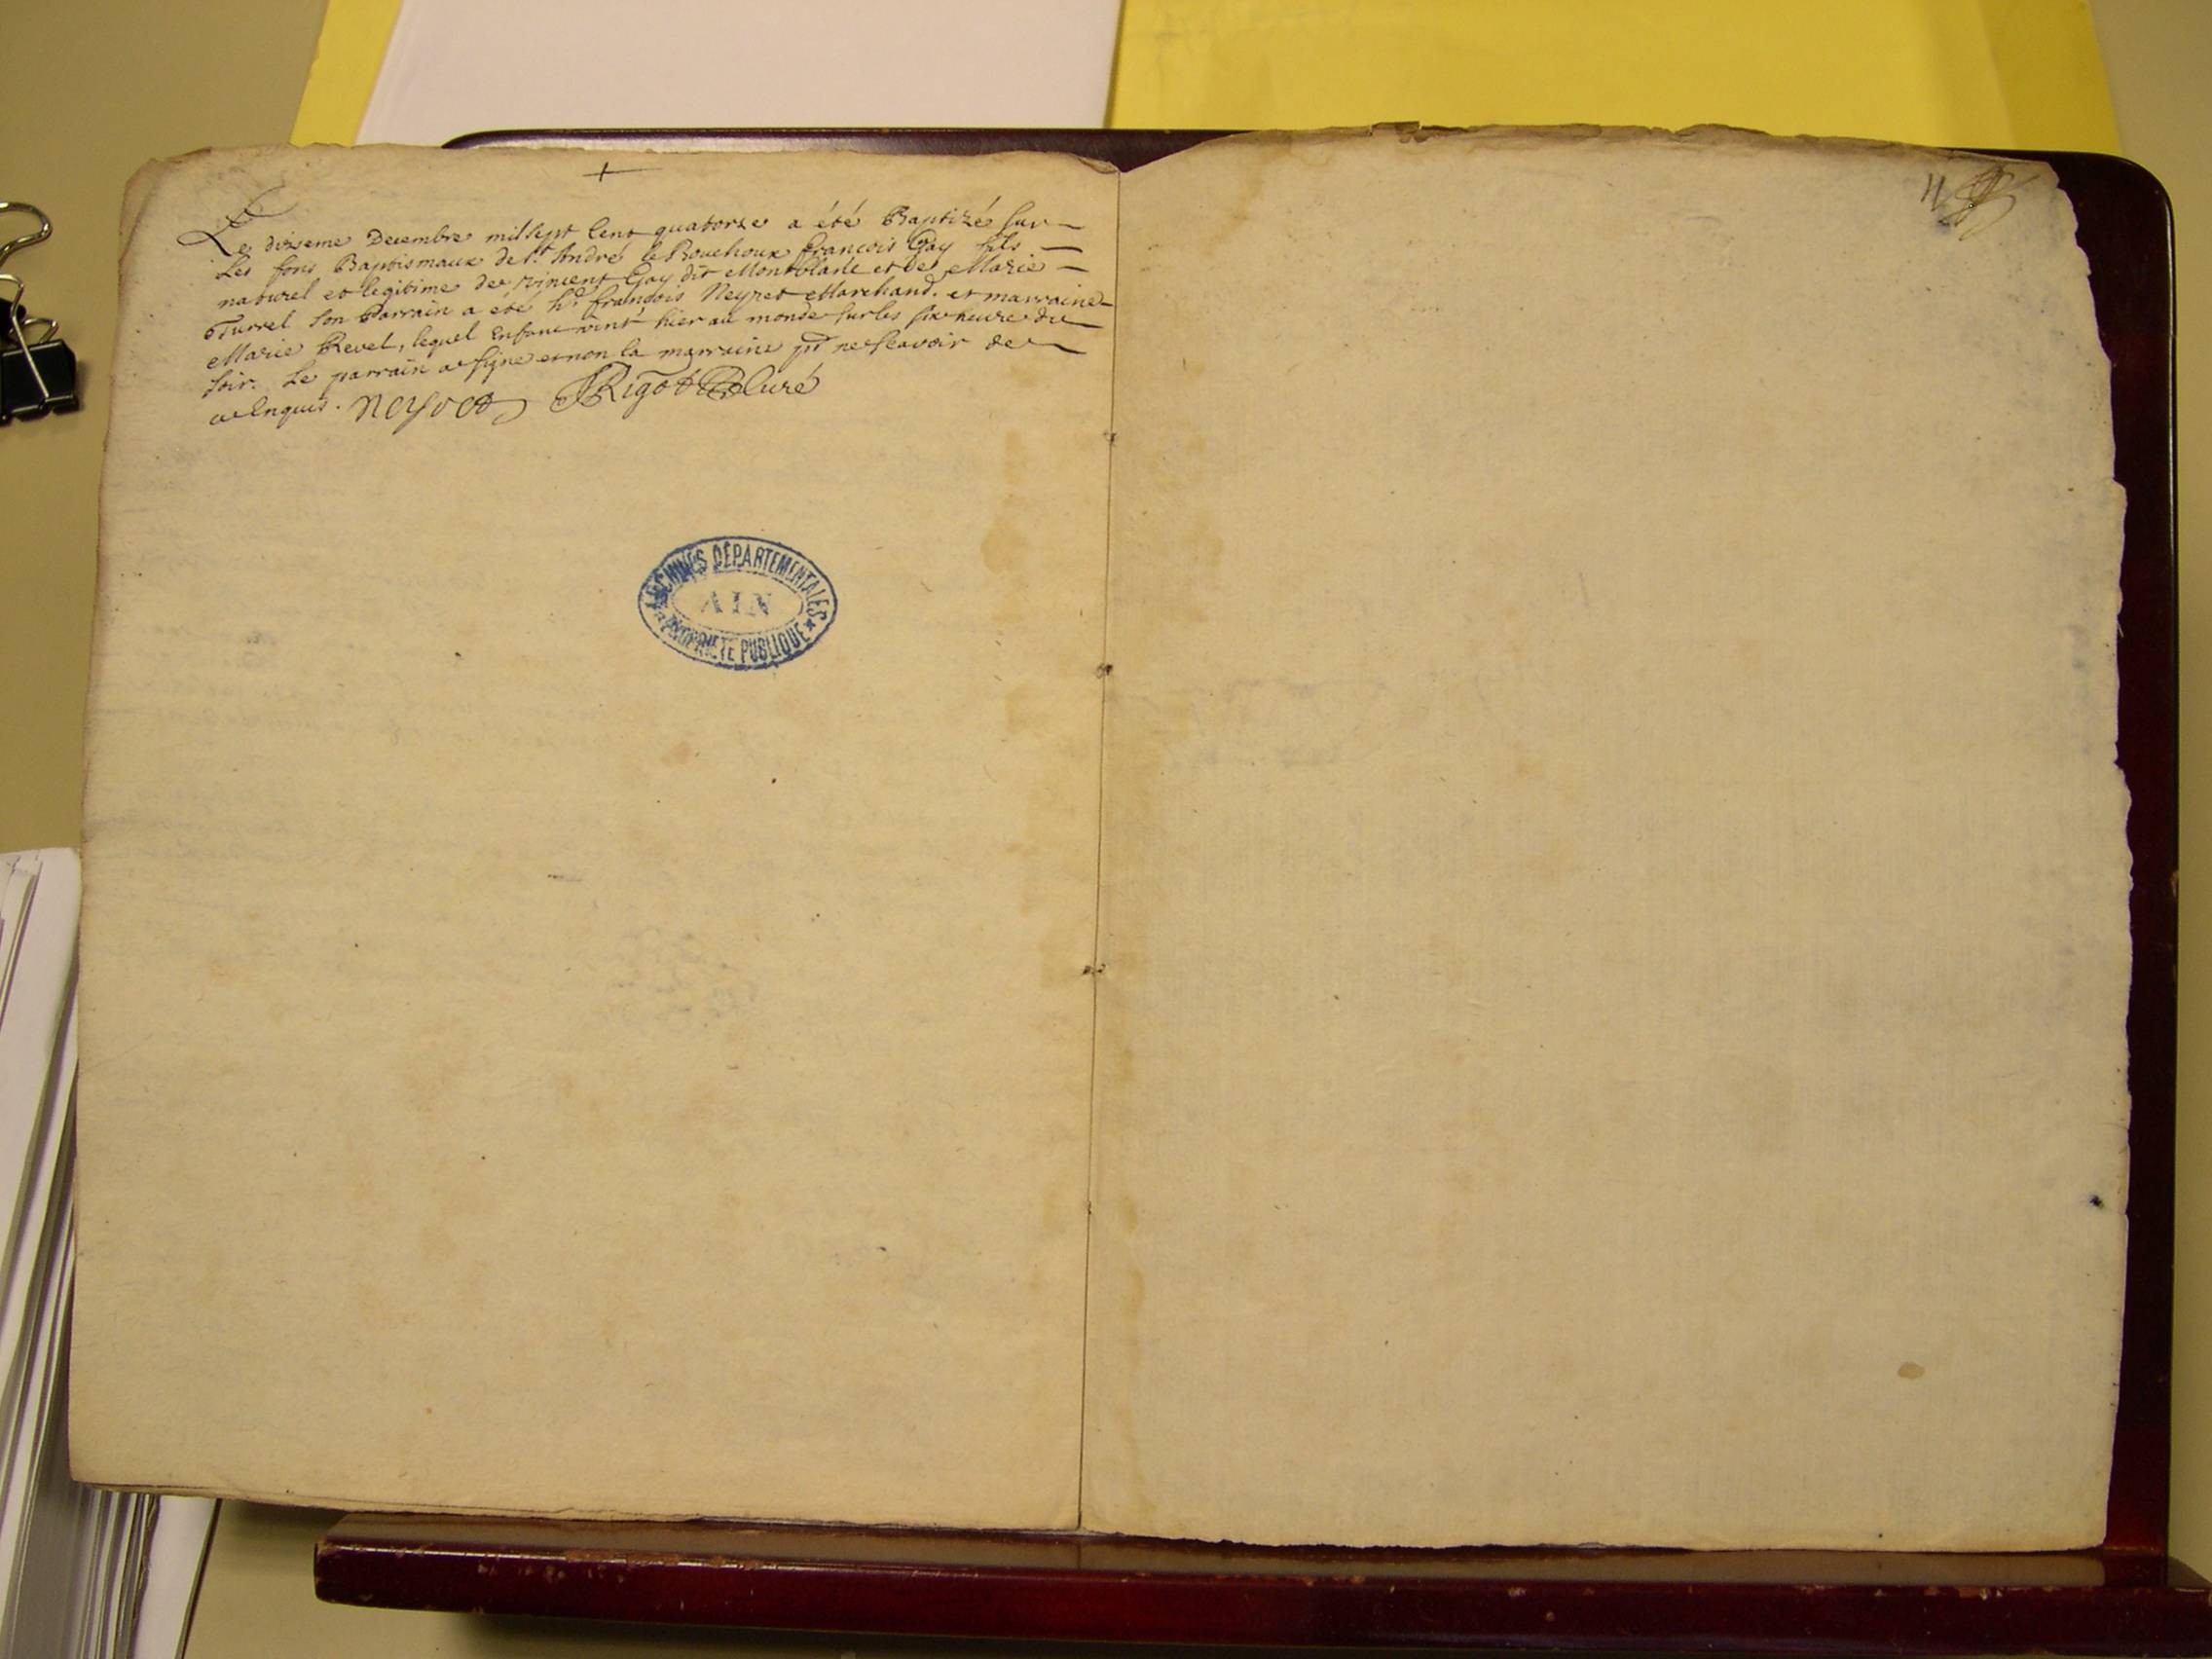 Le dixieme Decembre mil sept cent quatorze a été Baptizé sur
Les fons Baptismaux de St. André le Bouchoux francois Gay fils
naturel et legitime de vincent Gay dit Montblanc et de Marie
Turrel son Parrain a eté hd. françois Neyret Marchand. et marraine
Marie Revel, lequel Enfant vint hier au monde sur les six heure du
soir. Le parrain a signe et non la marraine pr ne scavoir de
ce Enquis. neyret Rigod Curé
ARCHIVES DÉPARTEMENTALES
AIN
PROPRIÉTÉ PUBLIQUE